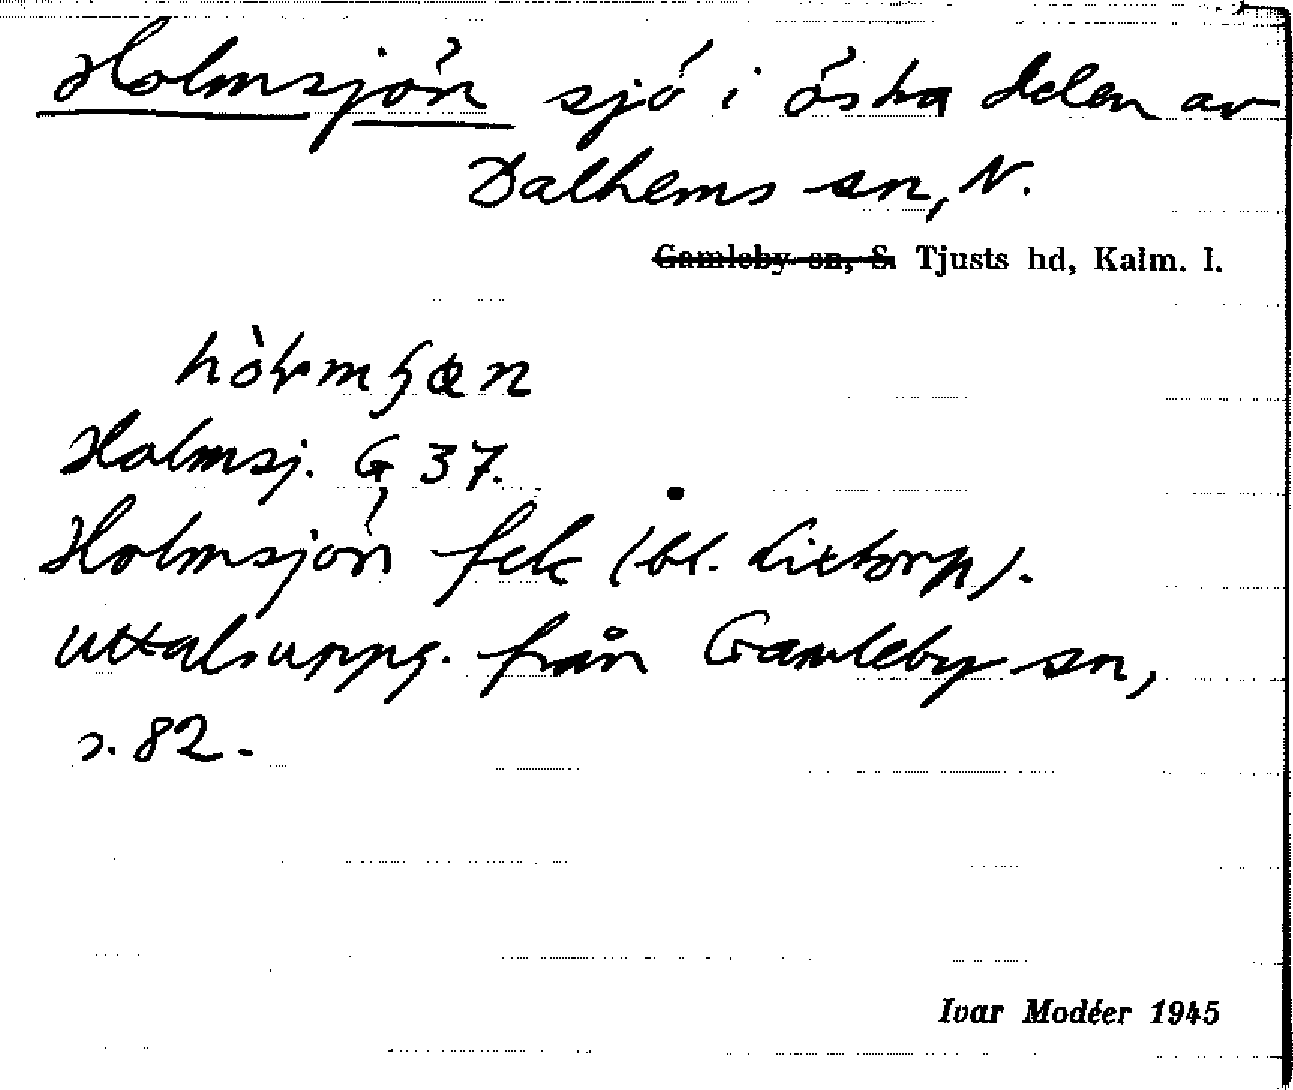 Holmsjön sjö i östra delen av
Dalhems sn, N.
Gamleby sn, S. Tjusts hd, Kalm. l.
Holmsj. G 37.
Holmsjön fek (bl. Lixtorp).
uttalsuppg. från Gamleby sn,
s. 82.
Ivar Modéer 1945